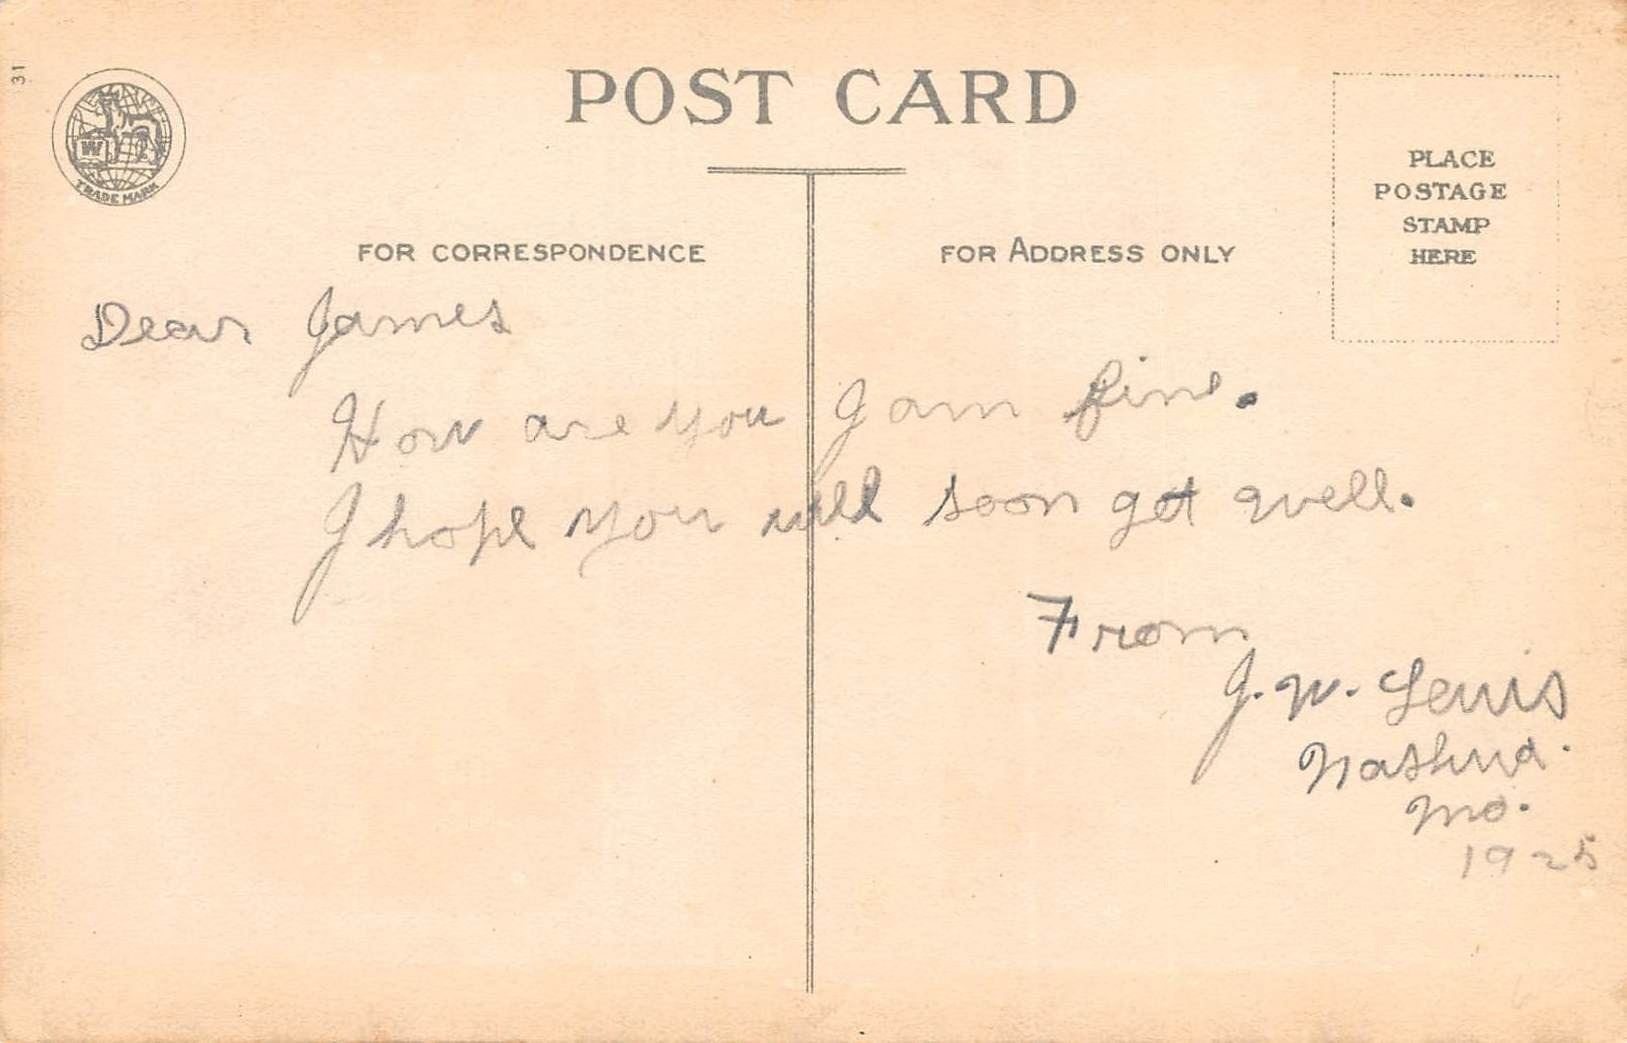 31
POST CARD
W
TRADE MARK
PLACE
POSTAGE
STAMP
HERE
FOR CORRESPONDENCE
FOR ADDRESS ONLY
Dear James
How are you I am fine.
I hope you will soon get well.
From
J. W. Lewis
Nashua.
Mo.
1925